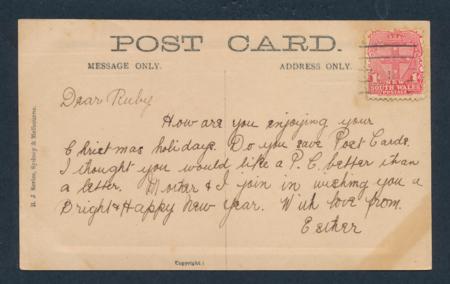 POST CARD.
MESSAGE ONLY. ADDRESS ONLY.
1D NEW 1D
SOUTH WALES
POSTAGE
Dear Ruby
How are you enjoying your
Christmas holidays. Do you save Post Cards.
I thought you would like a P.C. better than
a letter. & I join in wishing you a
Bright & Happy New Year. With love from
Esther
Sydney & Melbourne.
Copyright.